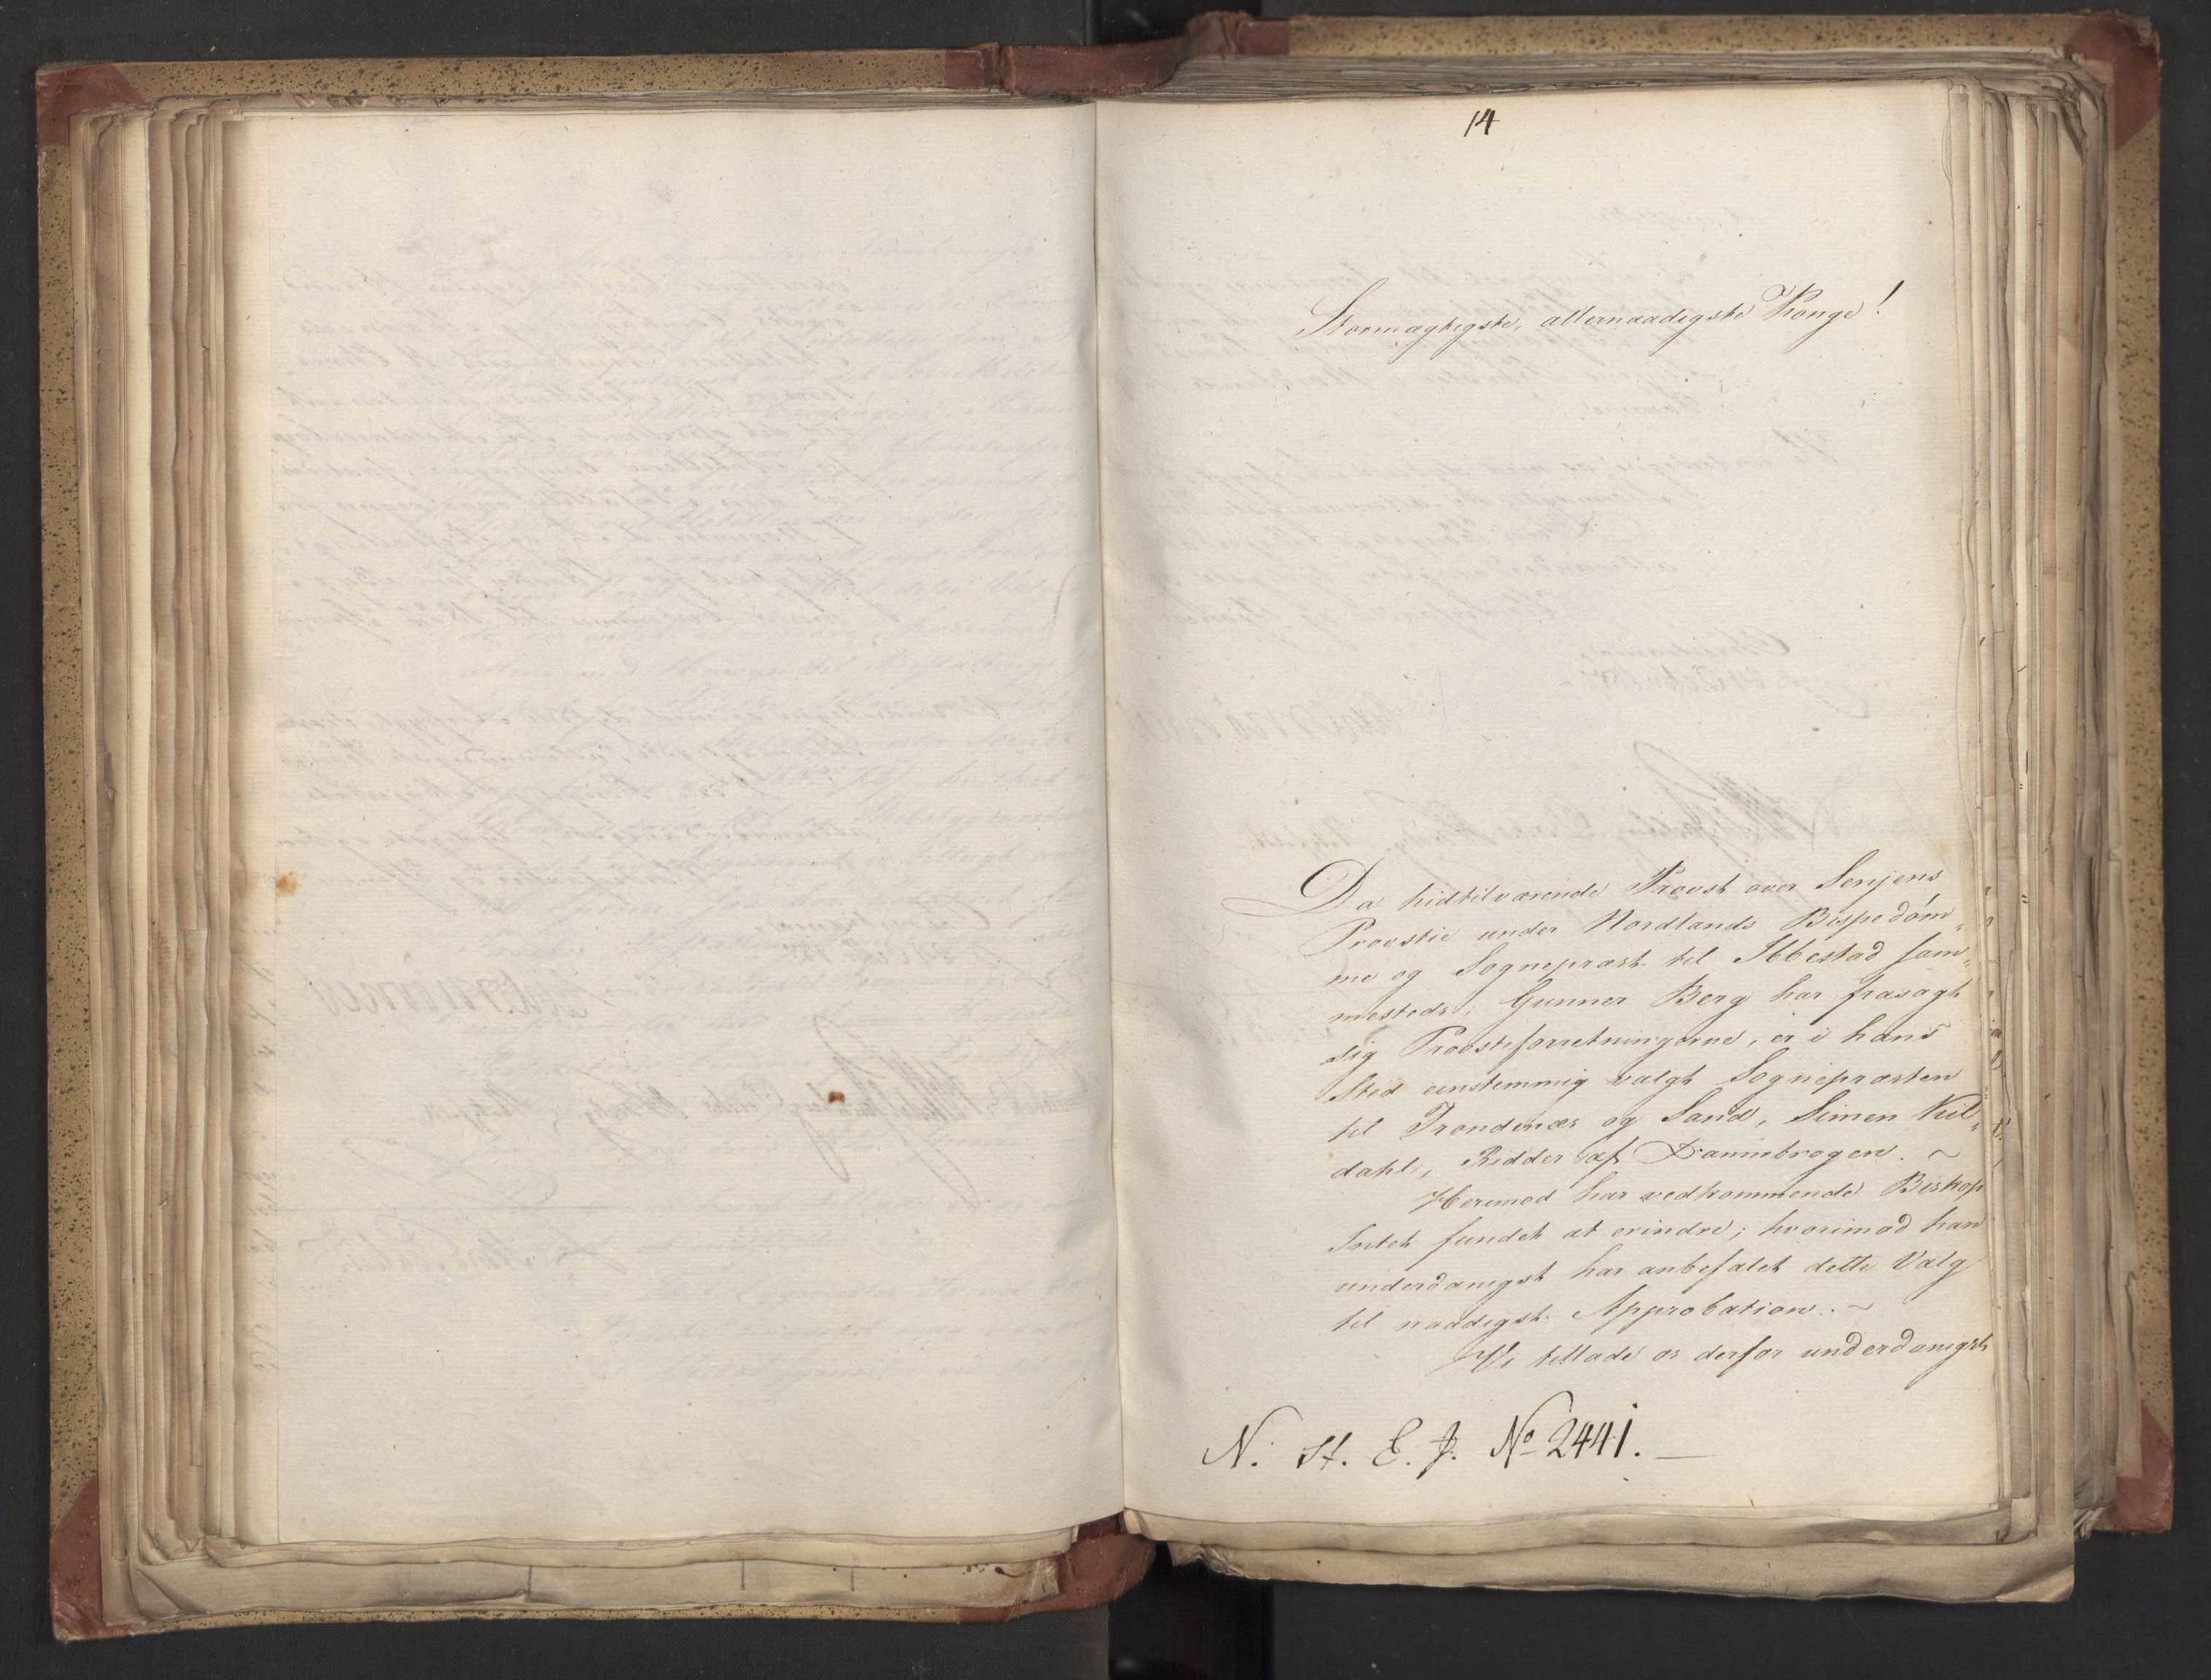 14
Stormægtigste, allernaadigste Konge!
Da hidtilværende Provst over Senjens
Provstie under Nordlands Bispedöm„
me og Sognepræst til Ibbestad sam„
mesteds, Gunner Berg har frasagt
sig Provsteforretningerne, er i hans
Sted eenstemmig valgt Sognepræsten
til Trondenæs og Sand, Simen Kil„
dahl, Ridder af Dannebrogen. ~
Herimod har vedkommende Biskop
Intet fundet at erindre; hvorimod han
underdanigst har anbefalet dette Valg
til naadigst Approbation. ~
Vi tillade os derfor underdanigst
N. St. E. J. No 2441. —